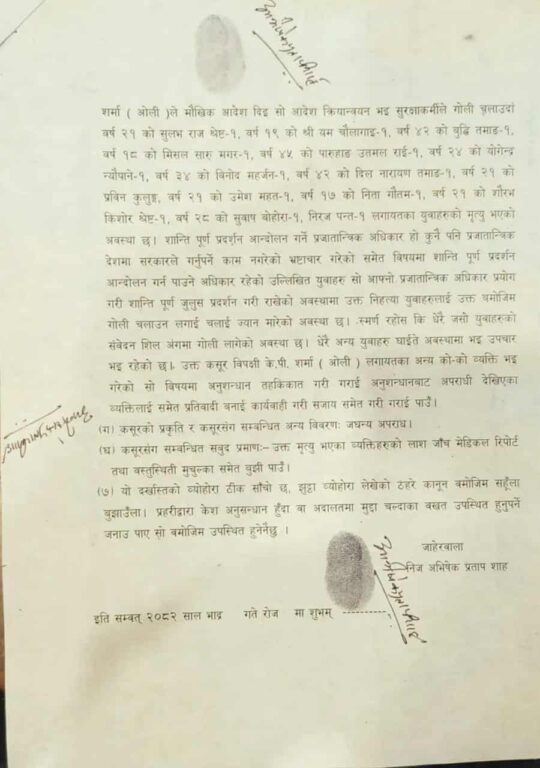 शर्मा ( ओली )ले मौखिक आदेश दिइ सो आदेश क्रियान्वयन भइ सुरक्षाकर्मीले गोली चलाउदा
वर्ष २१ को सुलभ राज श्रेष्ट-१, वर्ष १९ को श्री यम चौलागाइ-१, वर्ष ४२ को वुद्धि तमाङ-१,
वर्ष १८ को मिसल सारु मगर-१, वर्ष ४५ को पारुहाङ उतमल राई-१, वर्ष २४ को योगेन्द्र
न्यौपाने-१, वर्ष ३४ को विनोद महर्जन-१, वर्ष ४२ को दिल नारायण तमाङ-१, वर्ष २१ को
प्रविन कुलुङ्ग, वर्ष २१ को उमेश महत-१, वर्ष १७ को निता गौतम-१, वर्ष २१ को शौरभ
किशोर श्रेष्ट-१, वर्ष २८ को सुवाष बोहोरा-१, निरज पन्त-१ लगायतका युवाहरुको मृत्यु भएको
अवस्था छ। शान्ति पूर्ण प्रदर्शन आन्दोलन गर्ने प्रजातान्त्रिक अधिकार हो कुनै पनि प्रजातान्त्रिक
देशमा सरकारले गर्नुपर्ने काम नगरेको भ्रष्टाचार गरेको समेत विषयमा शान्ति पूर्ण प्रदर्शन
आन्दोलन गर्न पाउने अधिकार रहेको उल्लिखित युवाहरु सो आफ्नो प्रजातान्त्रिक अधिकार प्रयोग
गरी शान्ति पूर्ण जुलुस प्रदर्शन गरी राखेको अवस्थामा उक्त निहत्या युवाहरुलाई उक्त वमोजिम
गोली चलाउन लगाई चलाई ज्यान मारेको अवस्था छ। स्मर्ण रहोस कि धेरै जसो युवाहरुको
संवेदन शिल अंगमा गोली लागेको अवस्था छ। धेरै अन्य युवाहरु घाईते अवस्थामा भइ उपचार
भइ रहेको छ। उक्त कसूर विपक्षी के.पी. शर्मा ( ओली ) लगायतका अन्य को-को व्यक्ति भइ
गरेको सो विषयमा अनुशन्धान तहकिकात गरी गराई अनुशन्धानबाट अपराधी देखिएका
व्यक्तिलाई समेत प्रतिवादी बनाई कार्यवाही गरी सजाय समेत गरी गराई पाउँ।
(ग) कसूरको प्रकृति र कसूरसंग सम्बन्धित अन्य विवरण: जघन्य अपराध।
(घ) कसूरसंग सम्बन्धित सवुद प्रमाण:- उक्त मृत्यु भएका व्यक्तिहरुको लाश जाँच मेडिकल रिपोर्ट
तथा वस्तुस्थिती मुचुल्का समेत वुझी पाउँ।
(७) यो दर्खास्तको व्योहोरा ठीक साँचो छ, झुठ्ठा व्योहोरा लेखेको ठहरे कानून वमोजिम सहूँला
बुझाउँला। प्रहरीद्वारा केश अनुसन्धान हुँदा वा अदालतमा मुद्दा चल्दाका वखत उपस्थित हुनुपर्ने
जनाउ पाए सो वमोजिम उपस्थित हुनेनैछु ।
जाहेरवाला
निज अभिषेक प्रताप शाह
इति सम्वत् २०८२ साल भाद्र गते रोज मा शुभम् ------------